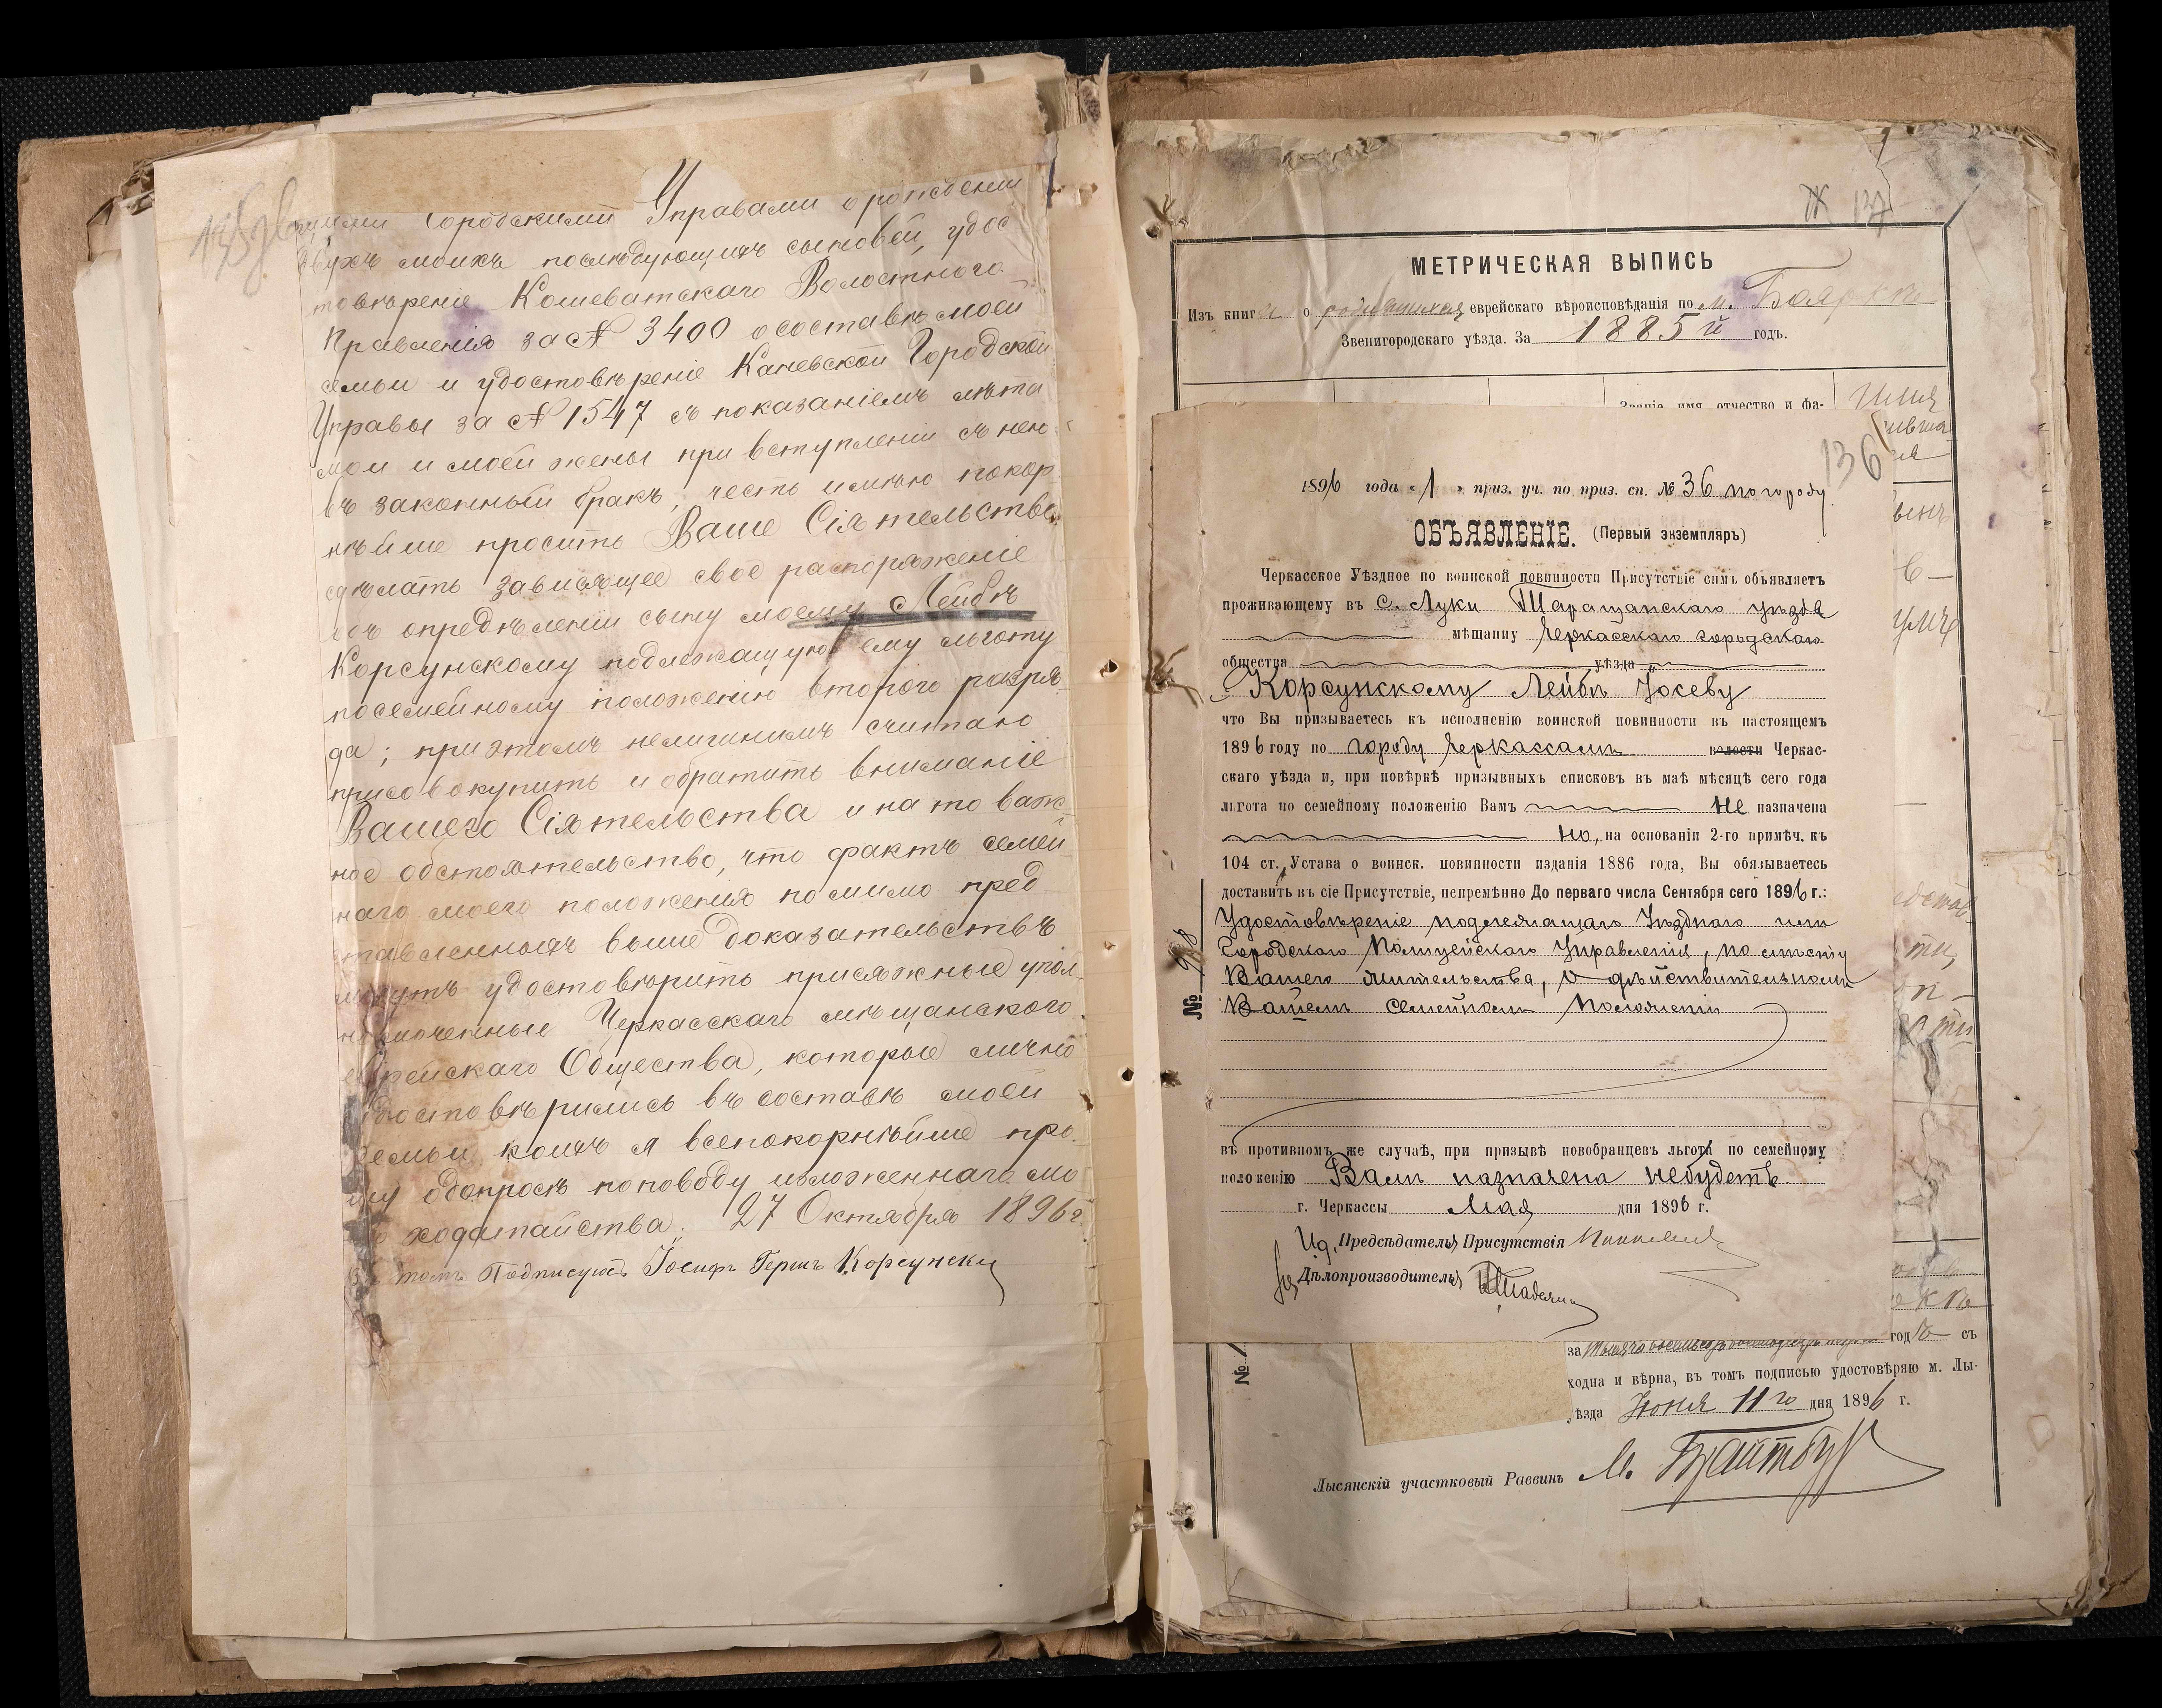 Городскими Управами о рожденіи
двухъ моихъ послѣдующихъ сыновей, удос
товѣреніе Кошеватскаго Волостного
Правленія за № 3400 о составѣ моей
семьи и удостовѣреніе Каневской Городской
Управы за № 1547 съ показаніемъ лѣта
мои и моей жены при вступленіи съ нею
въ законный бракъ, честь имѣю покор
нѣйше просить Ваше Сіятельство
сдѣлать зависящее свое распоряженіе
объ опредѣленіи сыну моему Лейбѣ
Корсунскому подлежащую ему льготу
посемейному положенію второго разря
да; при этомъ нелишнимъ считаю
присовокупить и обратить вниманіе
Вашего Сіятельства и на то важ
ное обстоятельство, что фактъ семей
наго моего положенія помимо пред
ставленныхъ выше доказательствъ
могутъ удостовѣрить присяжные упол
номоченные Черкасскаго мѣщанского
еврейскаго Общества, которые лично
удостовѣрились въ составѣ моей
семьи, коихъ я всепокорнѣйше про
шу одопросѣ поповоду изложеннаго мо
го ходатайства. 27 Октября 1896 г.
Подписуюсь Іосифъ Гершъ Корсунскій
137
МЕТРИЧЕСКАЯ ВЫПИСЬ
Изъ книги о родившихся еврейскаго вѣроисповѣданія по м. Бояркѣ
Звенигородскаго уѣзда. За 1885 й годъ.
Званіе, имя, отчество и фа-
Имя
136
1896 года «1» приз. уч. по приз. сп. № 36 по городу
ОБЪЯВЛЕНІЕ. (Первый экземпляръ)
Черкасское Уѣздное по воинской повинности Присутствіе симъ объявляетъ
проживающему въ с. Луки Таращанскаго уѣзда
мѣщанину Черкасскаго городскаго
общества уѣзда
Корсунскому Лейбѣ Іосеву
что Вы призываетесь къ исполненію воинской повинности въ настоящемъ
1896 году по городу Черкассамъ волости Черкас-
скаго уѣзда и, при повѣркѣ призывныхъ списковъ въ маѣ мѣсяцѣ сего года
льгота по семейному положенію Вамъ не назначена
но, на основаніи 2-го примѣч. къ
104 ст. Устава о воинск. повинности изданія 1886 года, Вы обязываетесь
доставить въ сіе Присутствіе, непремѣнно До перваго числа Сентября сего 1896 г.:
Удостовѣреніе подлежащаго Уѣзднаго или
Городскаго Полицейскаго Управленія, по мѣсту
Вашего жительства, о дѣйствительномъ
Вашемъ семейномъ положеніи
№
въ противномъ же случаѣ, при призывѣ новобранцевъ льгота по семейному
положенію Вамъ назначена небудетъ.
г. Черкассы Мая дня 1896 г.
И.д. Предсѣдателя Присутствія
Дѣлопроизводителя
годъ съ
ходна и вѣрна, въ томъ подписью удостовѣряю м. Лы-
уѣзда Іюня 11 го дня 1896 г.
Лысянскій участковый Раввинъ М.